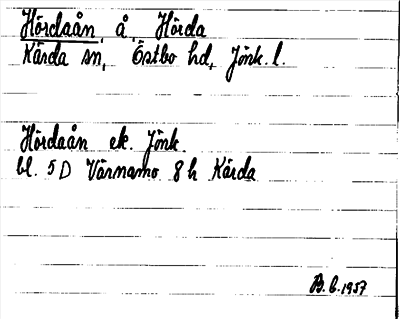 Hördaån, å, Hörda
Kärda sn, Östbo hd, Jönk. l.
Hördaån ek. Jönk.
bl. 5 D Värnamo 8 h Kärda
B. E. 1957